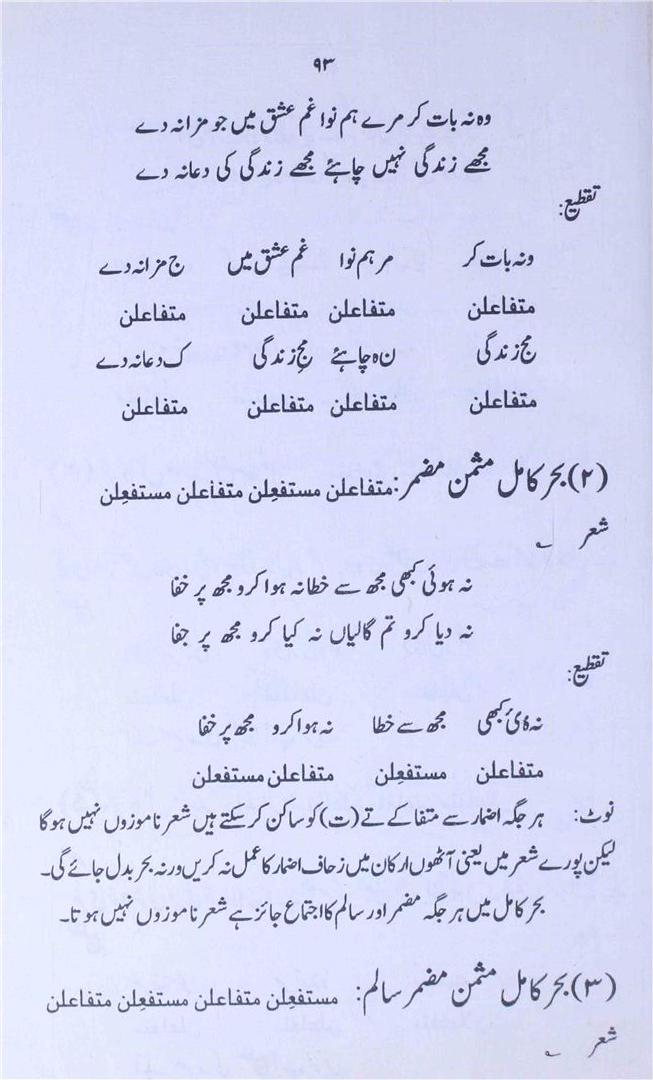 ۹۳
وہ نہ بات کر مرے ہم نوا غم عشق میں جو مزا نہ دے
مجھے زندگی نہیں چاہئے مجھے زندگی کی دعا نہ دے
تقطیع:
ونہ بات کر مر ہم نوا غم عشق میں ج مزا نہ دے
متفاعلن متفاعلن متفاعلن متفاعلن
مج زندگی ن ہ چاہئے مجِ زندگی ک دعا نہ دے
متفاعلن متفاعلن متفاعلن متفاعلن
(۲) بحر کامل مثمن مضمر: متفاعلن مستفعِلن متفاعلن مستفعِلن
شعر
نہ ہوئی کبھی مجھ سے خطا نہ ہوا کرو مجھ پر خفا
نہ دیا کرو تم گالیاں نہ کیا کرو مجھ پر جفا
تقطیع:
نہ ہُ ئ کبھی مجھ سے خطا نہ ہوا کرو مجھ پر خفا
متفاعلن مستفعِلن متفاعلن مستفعلن
نوٹ: ہر جگہ اضمار سے متفا کے تے (ت) کو ساکن کر سکتے ہیں شعر ناموزوں نہیں ہوگا
لیکن پورے شعر میں یعنی آٹھوں ارکان میں زحاف اضمار کا عمل نہ کریں ورنہ بحر بدل جائے گی۔
بحر کامل میں ہر جگہ مضمر اور سالم کا اجتماع جائز ہے شعر ناموزوں نہیں ہوتا۔
(۳) بحر کامل مثمن مضمر سالم: مستفعِلن متفاعلن مستفعِلن متفاعلن
شعر